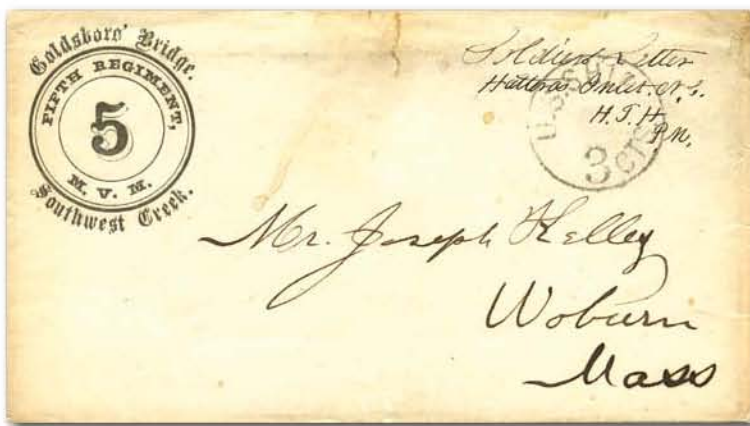 Goldsboro' Bridge.
FIFTH REGIMENT,
5
M. V. M.
Southwest Creek.
Soldiers Letter
Hatteras Inlet. N. C.
H. T. H
P.M.
U.S. SHIP
3 CTS
Mr. Joseph Kelley
Woburn
Mass